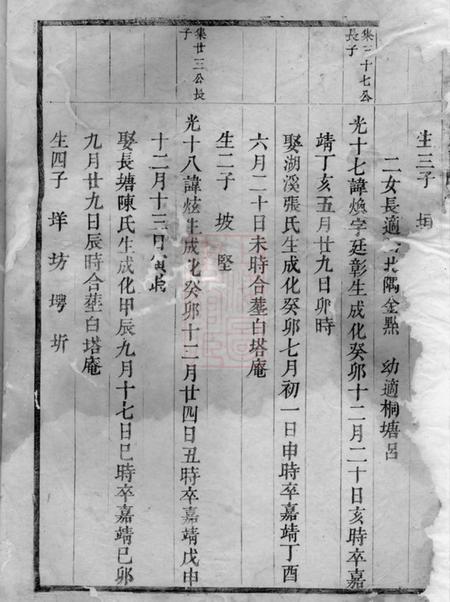 生三子
二女長適 北隅金點 幼適桐塘呂
集三十七公
長子
光十七諱煥字廷彰生成化癸卯十二月二十日亥時卒嘉
靖丁亥五月廿九日卯時
娶湖溪張氏生成化癸卯七月初一日申時卒嘉靖丁酉
六月二十日未時合塟白塔庵
生二子 坡 堅
集廿三公長
子
光十八諱炫生成化癸卯十二月廿四日丑時卒嘉靖戊申
十二月十三日寅
娶長塘陳氏生成化甲辰九月十七日巳時卒嘉靖巳卯
九月廿九日辰時合塟白塔庵
生四子 垟 坊 塄 圻